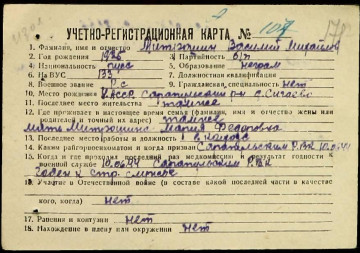 УЧЕТНО-РЕГИСТРАЦИОННАЯ КАРТА № 107
1. Фамилия, имя и отчество Митюшин Василий Михайлов
2. Год рождения 1926 3. Партийность б/п
4. Национальность русс 5. Образование неграм
6. На ВУС 133 7. Должностная квалификация
8. Военное звание р-с 9. Гражданская специальность нет
10. Место рождения УАССР, Сарапульский р-н с. Сигаево
11. Последнее место жительства
12. Где проживает в настоящее время семья (фамилия, имя и отчество жены или
родителей и точный их адрес)
мать Митюшина Мария Федоровна
13. Последнее место работы и должность
14. Каким райгорвоенкоматом и когда призван Сарапульским РВК 10.6.41
15. Когда и где проходил последний раз медкомиссию и результат годности к
военной службе 10.06.44 Сарапульским РВК
годен к стр. службе
16. Участие в Отечественной войне (в составе какой последней части и в качестве
кого, когда) нет
17. Ранения и контузии нет
18. Нахождение в плену или окружении нет